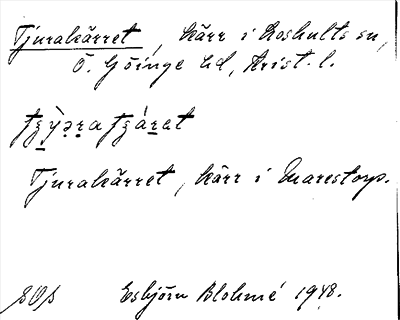 Tjurakärret, kärr i Loshults sn,
Ö. Göinge hd, Krist. l.
Tjurakärret, kärr i Marestorp.
SOS Esbjörn Blohmé 1948.